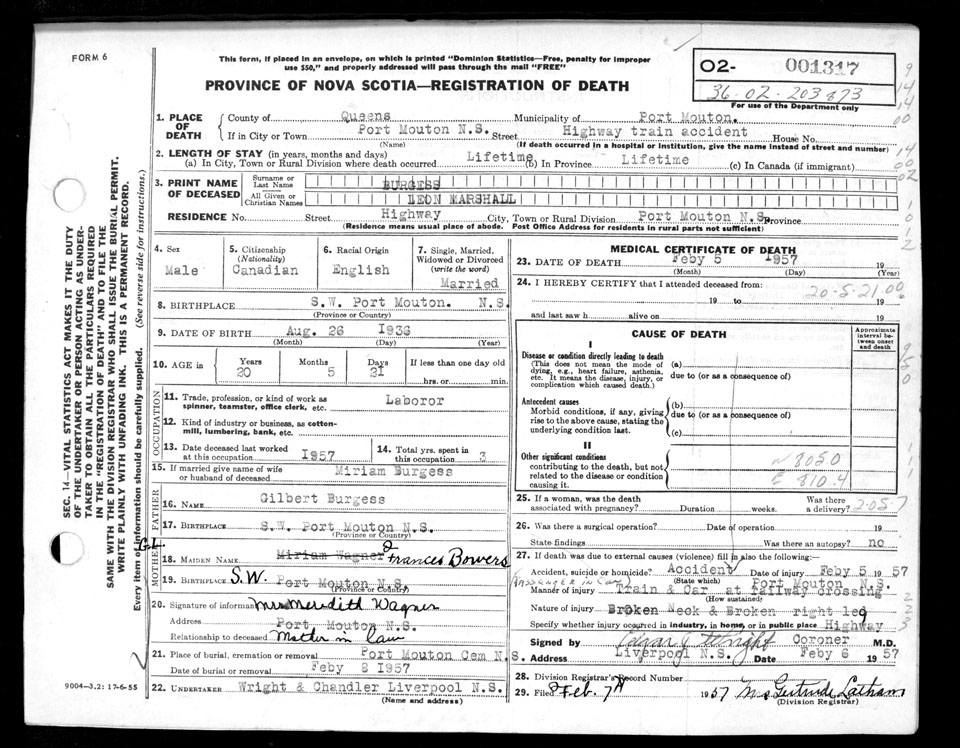 FORM 6
This form, if placed in an envelope, on which is printed "Dominion Statistics—Free, penalty for improper
use $50," and properly addressed will pass through the mail "FREE"
PROVINCE OF NOVA SCOTIA—REGISTRATION OF DEATH
02- 001317
36-02-203873
For use of the Department only
1. PLACE OF DEATH
County of Queens Municipality of Port Mouton.
If in City or Town Port Mouton N.S. Street Highway train accident House No.
(Name) (If death occurred in a hospital or institution, give the name instead of street and number)
2. LENGTH OF STAY (in years, months and days)
(a) In City, Town or Rural Division where death occurred Lifetime (b) In Province Lifetime (c) In Canada (if immigrant)
3. PRINT NAME OF DECEASED
Surname or Last Name BURGESS
All Given or Christian Names LEON MARSHALL
RESIDENCE No. Street Highway City, Town or Rural Division Port Mouton N.S. Province
(Residence means usual place of abode. Post Office Address for residents in rural parts not sufficient)
4. Sex
Male
5. Citizenship
(Nationality)
Canadian
6. Racial Origin
English
7. Single, Married,
Widowed or Divorced
(write the word)
Married
8. BIRTHPLACE S.W. Port Mouton. N.S.
(Province or Country)
9. DATE OF BIRTH Aug. 26 1936
(Month) (Day) (Year)
10. AGE in
Years Months Days If less than one day old
20 5 21 hrs. or min.
OCCUPATION
11. Trade, profession, or kind of work as
spinner, teamster, office clerk, etc. Laboror
12. Kind of industry or business, as cotton-
mill, lumbering, bank, etc.
13. Date deceased last worked
at this occupation 1957
14. Total yrs. spent in
this occupation 3
15. If married give name of wife
or husband of deceased Miriam Burgess
FATHER
16. NAME Gilbert Burgess
17. BIRTHPLACE S.W. Port Mouton N.S.
(Province or Country)
MOTHER
18. MAIDEN NAME Miriam Wagner Frances Bowers
19. BIRTHPLACE S.W. Port Mouton N.S.
(Province or Country)
20. Signature of informant Mrs Meredith Wagner
Address Port Mouton N.S.
Relationship to deceased Mother in law
21. Place of burial, cremation or removal Port Mouton Cem N.S.
Date of burial or removal Feby 8 1957
22. UNDERTAKER Wright & Chandler Liverpool N.S.
(Name and address)
9004—3.2: 17-6-55
MEDICAL CERTIFICATE OF DEATH
23. DATE OF DEATH Feby 5 1957 19
(Month) (Day) (Year)
24. I HEREBY CERTIFY that I attended deceased from:
20-5-21.00
19 to 19
and last saw h alive on 19
CAUSE OF DEATH
Approximate
interval be-
tween onset
and death
I
Disease or condition directly leading to death
(This does not mean the mode of
dying, e.g., heart failure, asthenia,
etc. It means the disease, injury, or
complication which caused death.)
(a)
due to (or as a consequence of)
Antecedent causes
Morbid conditions, if any, giving
rise to the above cause, stating the
underlying condition last.
(b)
due to (or as a consequence of)
(c)
II
Other significant conditions
contributing to the death, but not
related to the disease or condition
causing it.
N 8050
E 810.4
25. If a woman, was the death
associated with pregnancy? Duration weeks. Was there
a delivery? 2-05-7
26. Was there a surgical operation? Date of operation 19
State findings Was there an autopsy? no
27. If death was due to external causes (violence) fill in also the following:
Accident, suicide or homicide? Accident Date of injury Feby 5 1957
(State which) Port Mouton N.S.
Passenger in Car
Manner of injury Train & Car at railway crossing
(How sustained)
Nature of injury Broken Neck & Broken right leg
Specify whether injury occurred in industry, in home, or in public place Highway
Signed by Coroner M.D.
Address Liverpool N.S. Date Feby 6 1957
28. Division Registrar's Record Number
29. Filed Feb. 7th 1957 Mrs Gertrude Latham
(Division Registrar)
SEC. 14—VITAL STATISTICS ACT MAKES IT THE DUTY
OF THE UNDERTAKER OR PERSON ACTING AS UNDER-
TAKER TO OBTAIN ALL THE PARTICULARS REQUIRED
IN THE "REGISTRATION OF DEATH" AND TO FILE THE
SAME WITH THE DIVISION REGISTRAR WHO SHALL ISSUE THE BURIAL PERMIT.
WRITE PLAINLY WITH UNFADING INK. THIS IS A PERMANENT RECORD.
Every item of information should be carefully supplied. (See reverse side for instructions.)